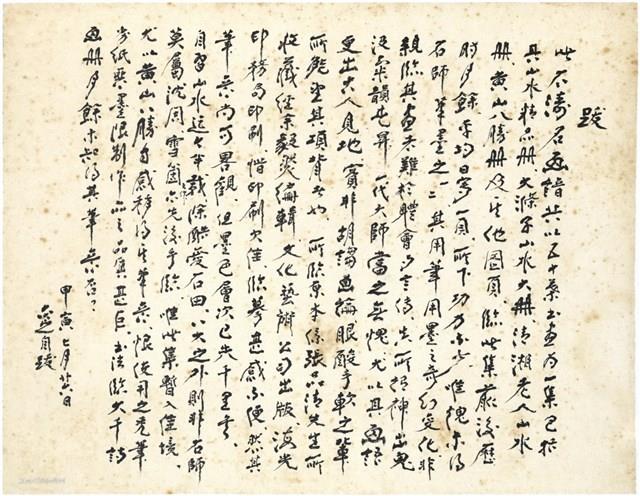 跋
此石濤石畫譜共以五十葉書畫為一集已括
其山水精品冊大滌子山水大冊清湘老人山水
冊黃山八勝冊及其他圖頁臨此集前後歷
時月餘平均日寫一頁所下功力不少惟愧未得
石師筆墨之一二其用筆用墨之奇幻變化非
親臨其畫者難於體會言傳其所精神出鬼
泣氣韻尤昇一代大師當之無愧尤以其畫語
更出古人見地實非胡謅畫論眼酸手軟之輩
所能望其項背者也所臨葉本係張品清先生所
收藏經余毅然編輯文化藝術公司出版海光
印務局印刷惜印刷欠佳臨摹甚感不便然其
筆意尚可畧觀但墨色層次已失千里矣
自習山水近七年我除酷愛石田八大之外則非石師
莫屬沈周雪個亦先後手臨惟此集暫入佳境
尤以黃山八勝自感稍得其筆意恨使用之禿筆
劣紙與墨限制作品之品質甚巨書法臨大千詩
畫冊月餘未知得其筆意否？
甲寅七月廿八日
自跋